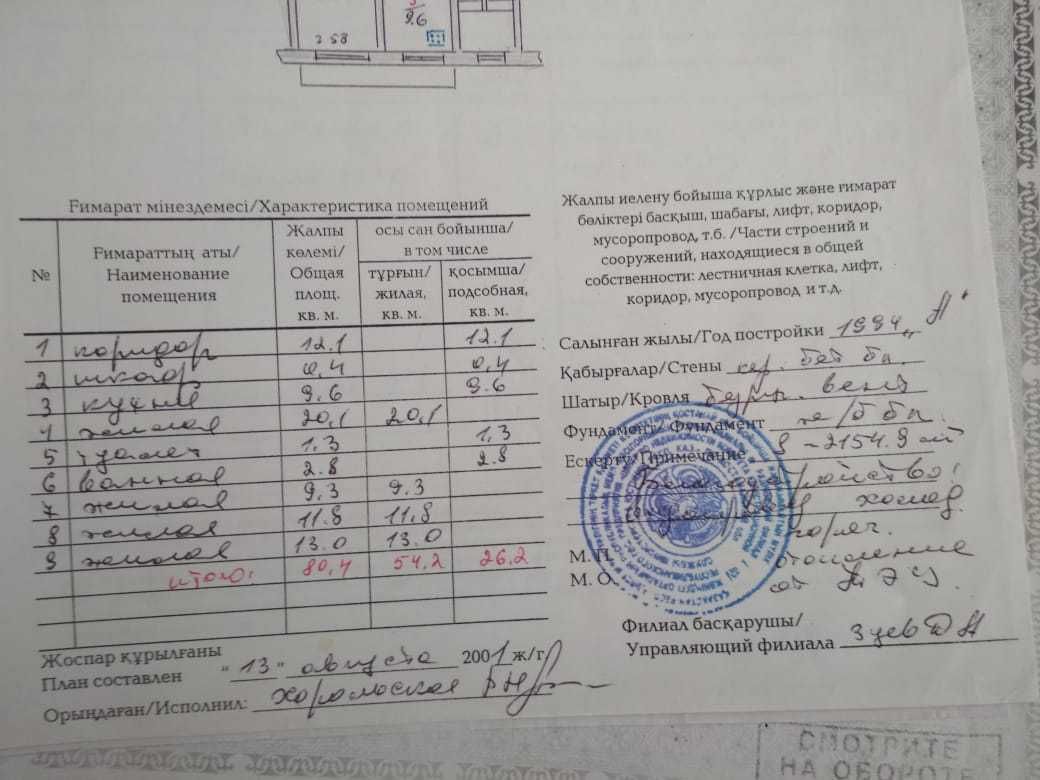 3
9.6
2 58
Ғимарат мінездемесі/Характеристика помещений
№ Ғимараттың аты/ Наименование помещения Жалпы көлемі/ Общая площ. кв. м. осы сан бойынша/ в том числе
тұрғын/ жилая, кв. м. қосымша/ подсобная, кв. м.
1 коридор 12.1 12.1
2 шкаф 0,4 0,4
3 кухня 9.6 9.6
4 жилая 20,1 20,1
5 туалет 1.3 1,3
6 ванная 2.8 2.8
7 жилая 9,3 9.3
8 жилая 11.8 11,8
9 жилая 13.0 13.0
итого: 80,4 54,2 26,2
Жоспар құрылғаны
План составлен "13" августа 2001 ж/г
Орындаған/Исполнил:
Жалпы иелену бойыша құрлыс және ғимарат
бөліктері басқыш, шабағы, лифт, коридор,
мусоропровод, т.б. /Части строений и
сооружений, находящиеся в общей
собственности: лестничная клетка, лифт,
коридор, мусоропровод и т.д.
Салынған жылы/Год постройки 1994
Қабырғалар/Стены кер. бет бл
Шатыр/Кровля
Фундамент/ Фундамент ж/б бл.
Ескерту/Примечание
Благоустройство:
холод.
горяч.
М. П. отопление
М. О. от ТЭЦ.
Филиал басқарушы/
Управляющий филиала
СМОТРИТЕ
НА ОБОРОТЕ